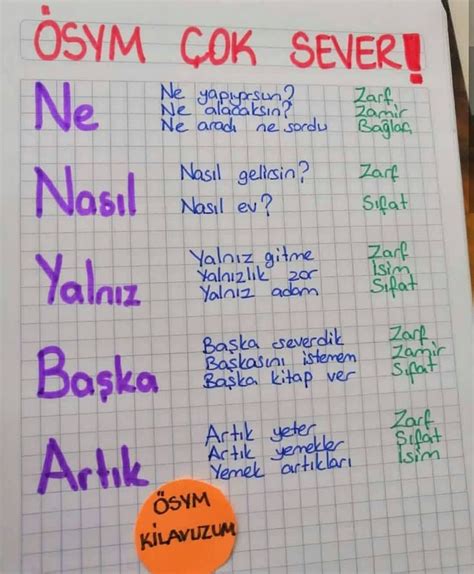 ÖSYM ÇOK SEVER!
Ne
Ne yapıyorsun? Zarf
Ne alacaksın? Zamir
Ne aradı ne sordu Bağlaç
Nasıl
Nasıl gelirsin? Zarf
Nasıl ev? Sıfat
Yalnız
Yalnız gitme Zarf
Yalnızlık zor İsim
Yalnız adam Sıfat
Başka
Başka severdik Zarf
Başkasını istemem Zamir
Başka kitap ver Sıfat
Artık
Artık yeter Zarf
Artık yemekler Sıfat
Yemek artıkları İsim
ÖSYM
KILAVUZUM